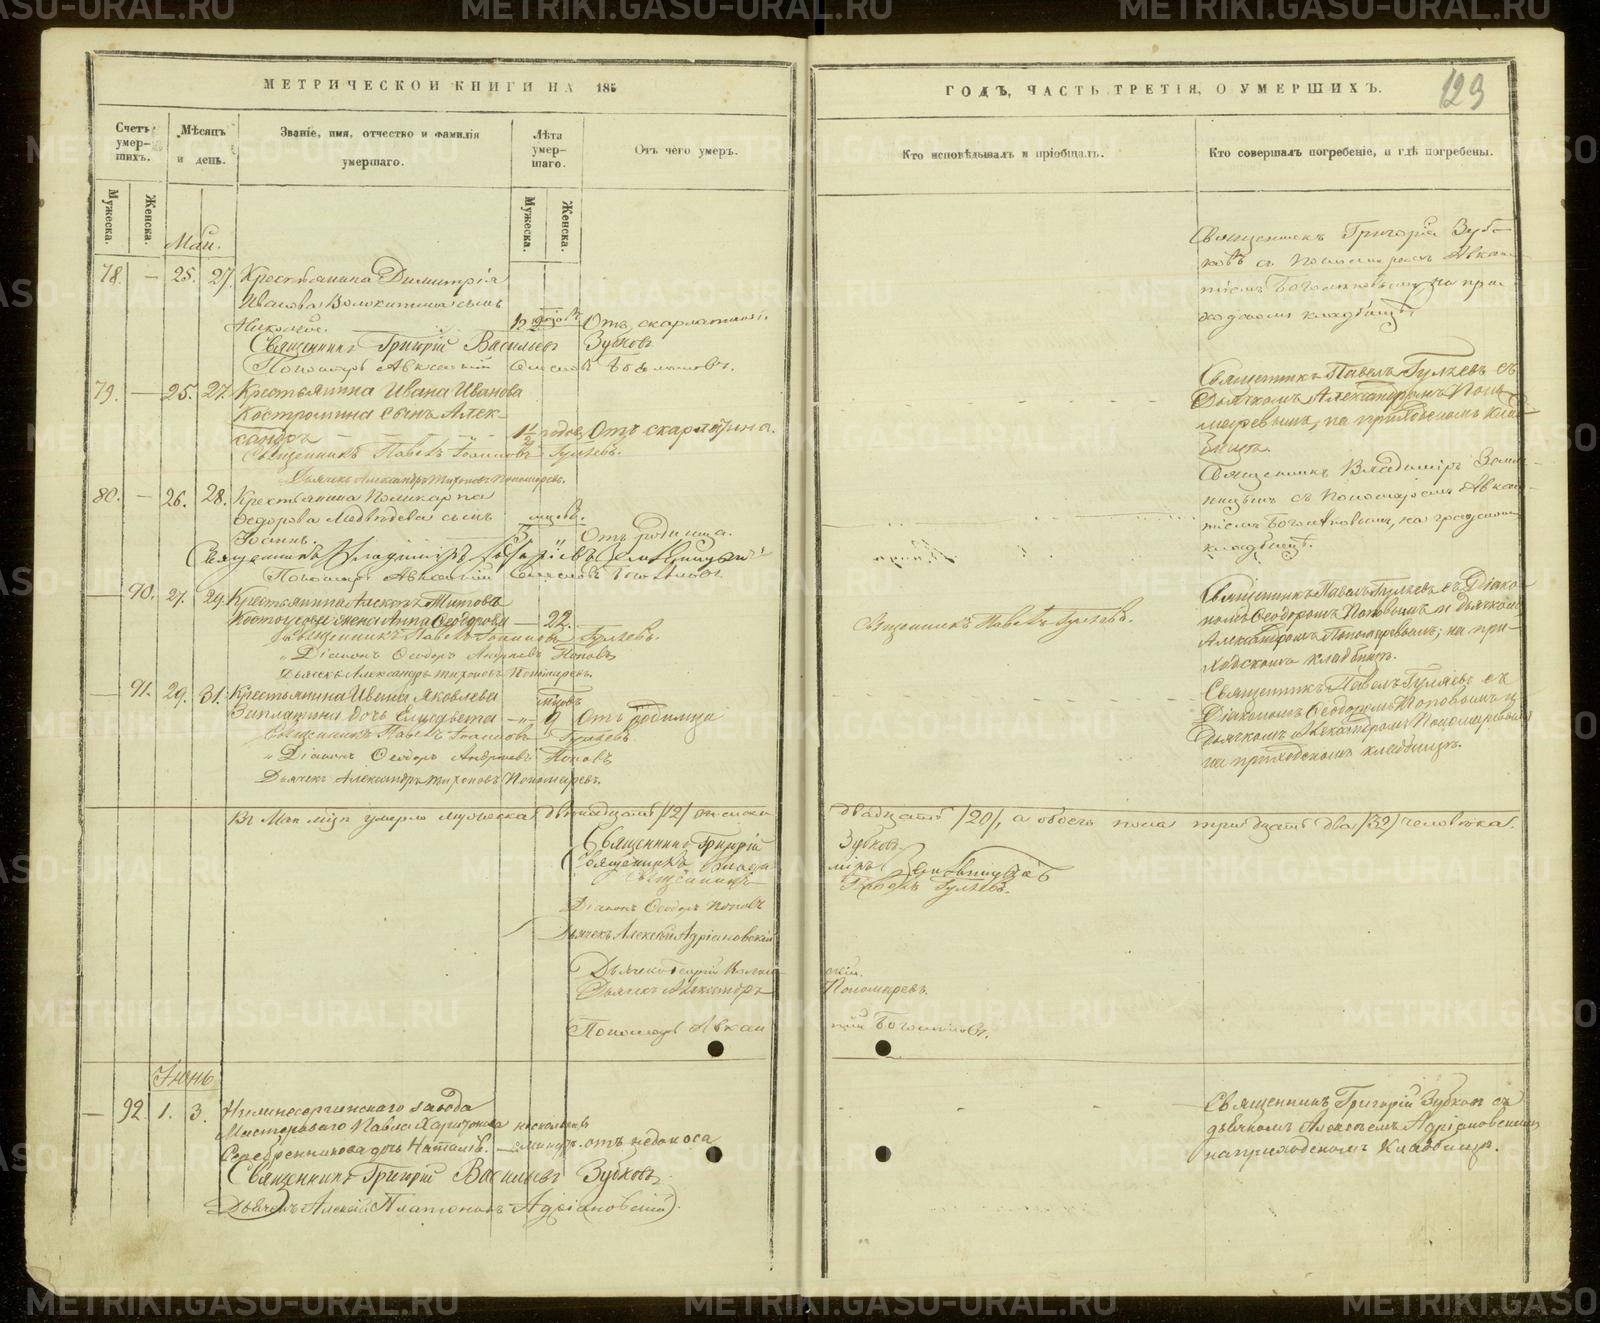 МЕТРИЧЕСКОЙ КНИГИ НА 185
Счетъ умер-шихъ.
Мѣсяцъ и день.
Званіе, имя, отчество и фамилія умершаго.
Лѣта умер-шаго.
Отъ чего умеръ.
Мужеска.
Женска.
Мужеска.
Женска.
Май.
78. — 25. 27. Крестьянина Димитрія
Иванова Волокитина сынъ
Николай. Отъ скарлатины.
Священникъ Григорій Васильевъ Зубковъ
Пономарь Авксентій
79. — 25. 27. Крестьянина Ивана Иванова
Костромина сынъ Алек-
сандръ 1½ годов. Отъ скарлатина.
Священникъ Павелъ Іоанновъ Гуляевъ.
Дьячекъ Александръ Тихоновъ Пономаревъ.
80. — 26. 28. Крестьянина Поликарпа
Ѳедорова Медведева сынъ
Іоаннъ. Отъ родимца.
Священникъ Владиміръ
Пономарь Авксентій
— 90. 27. 29. Крестьянина Алексѣя Титова
жена Анна Ѳеодорова — 22.
Священникъ Павелъ Іоанновъ Гуляевъ.
Діаконъ Ѳеодоръ Андреевъ Поповъ
Дьячекъ Александръ Тихоновъ Пономаревъ.
— 91. 29. 31. Крестьянина Ивана Яковлева
Заплатина дочь Елисавета 9 Отъ родимца
Священникъ Павелъ Іоанновъ Гуляевъ
Діаконъ Ѳеодоръ Андреевъ Поповъ
Дьячекъ Александръ Тихоновъ Пономаревъ.
Въ Маѣ мцѣ умерло мужеска двѣнадцать /12/ женска
Священникъ Григорій
Священникъ Влади-
Священникъ
Діаконъ Ѳеодоръ Поповъ
Дьячекъ Алексѣй Адріановскій
Дьячекъ Георгій
Дьячекъ Александръ
Пономарь Авксен
Іюнь
— 92 1. 3. Нижнесергинскаго завода
Мастероваго Павла Харитонова нѣсколько
Серебренникова дочь Наталія. — минутъ. отъ недоноса
Священникъ Григорій Васильевъ Зубковъ.
Дьячекъ Алексѣй Платоновъ Адріановскій.
ГОДЪ, ЧАСТЬ ТРЕТІЯ, О УМЕРШИХЪ.
123
Кто исповѣдывалъ и пріобщалъ.
Кто совершалъ погребеніе, и гдѣ погребены.
Священникъ Григорій Зуб-
ковъ съ Пономаремъ Авксен-
тіемъ на при-
ходскомъ кладбищѣ.
Священникъ Павелъ Гуляевъ съ
Дьячкомъ Александромъ Поно-
маревымъ, на приходскомъ клад-
бищѣ.
Священникъ Владиміръ
съ Пономаремъ Авксен-
тіемъ на градскомъ
кладбищѣ.
Священникъ Павелъ Гуляевъ.
Священникъ Павелъ Гуляевъ съ Діако-
номъ Ѳеодоромъ Поповымъ и дьячкомъ
Александромъ Пономаревымъ; на при-
ходскомъ кладбищѣ.
Священникъ Павелъ Гуляевъ съ
Діакономъ Ѳеодоромъ Поповымъ и
Дьячкомъ Александромъ Пономаревымъ
на приходскомъ кладбищѣ.
двадцать /20/, а обоего пола тридцать два /32/ человѣка.
Зубковъ
міръ
Павелъ Гуляевъ.
скій.
Пономаревъ.
Священникъ Григорій Зубковъ съ
дьячкомъ Алексѣемъ Адріановскимъ
на приходскомъ кладбищѣ.
METRIKI.GASO-URAL.RU